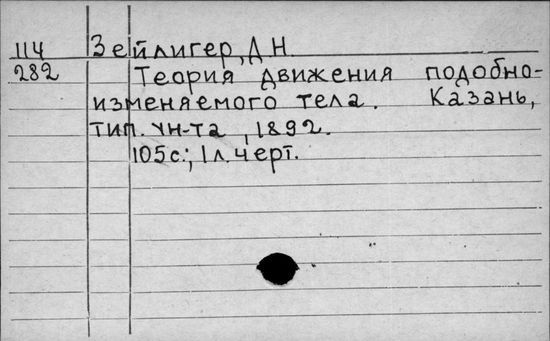 114 Зейлигер, Д Н
282 Теория движения подобно-
изменяемого тела. Казань,
тип. ун-та, 1892.
105с.; 1 л. черт.